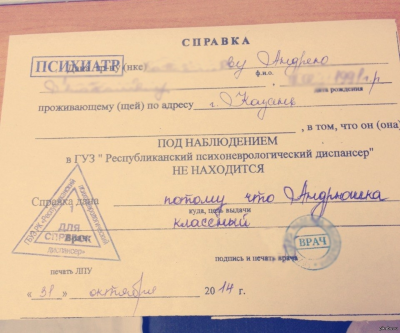 СПРАВКА
ПСИХИАТР
ву Андрею
ф.и.о.
1991 г.р
дата рождения
проживающему (щей) по адресу г Казань
, в том, что он (она)
ПОД НАБЛЮДЕНИЕМ
в ГУЗ " Республиканский психоневрологический диспансер"
НЕ НАХОДИТСЯ
Справка дана потому что Андрюшека
куда, цель выдачи
классный
ДЛЯ
СПРАВОК
ВРАЧ
подпись и печать врача
печать ЛПУ
« 31 » октября 2014 г.